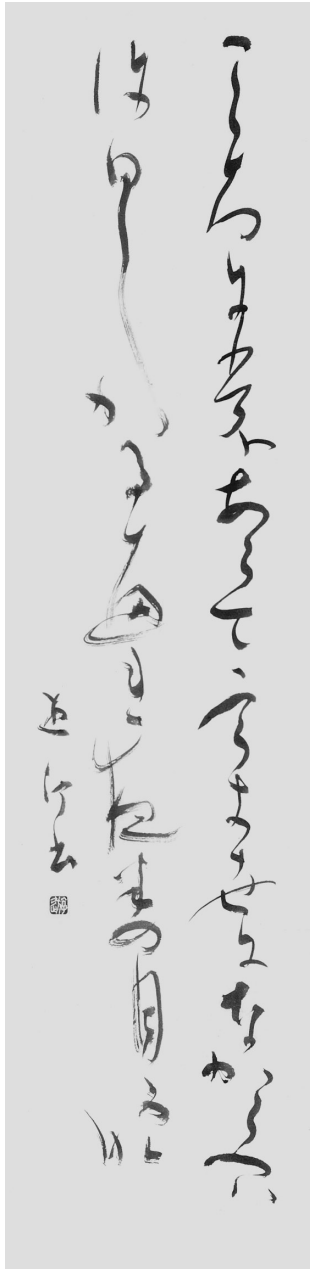 こころにもあらてうき世になからへハ
許日しかるへき夜半の月かな